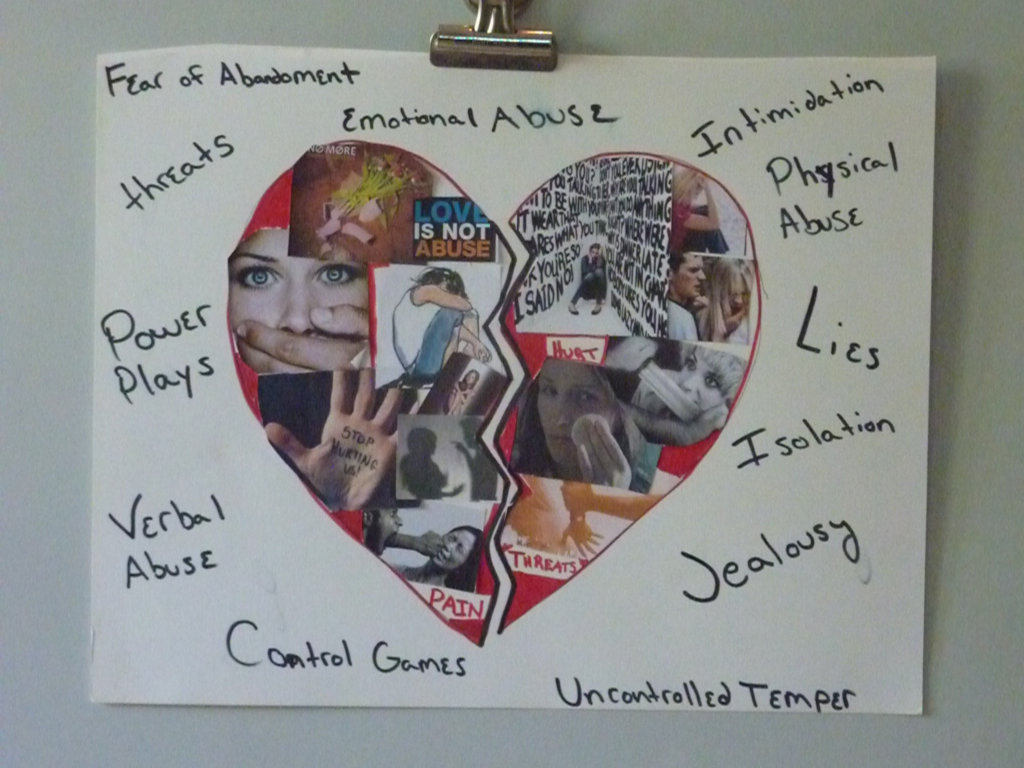 Fear of Abandoment
Emotional Abuse
Intimidation
threats
Physical
Abuse
NO MORE
LOVE
IS NOT
ABUSE
I SAID NO!
Power
Plays
Lies
HURT
STOP
HURTING
US!
Isolation
Verbal
Abuse
Jealousy
"THREATS"
PAIN
Control Games
Uncontrolled Temper